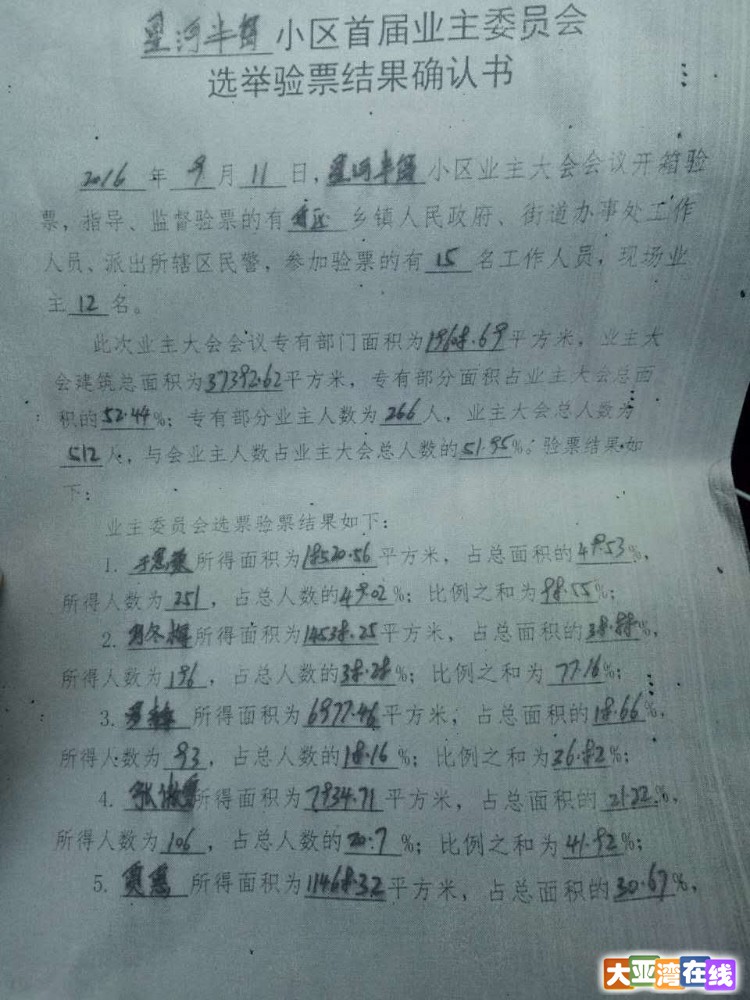 星河半岛 小区首届业主委员会
选举验票结果确认书
2016 年 9 月 11 日，星河半岛 小区业主大会会议开箱验
票，指导、监督验票的有 乡镇人民政府、街道办事处工作
人员、派出所辖区民警，参加验票的有 15 名工作人员，现场业
主 12 名。
此次业主大会会议专有部门面积为19608.69平方米，业主大
会建筑总面积为37392.62平方米，专有部分面积占业主大会总面
积的52.44%；专有部分业主人数为 266 人，业主大会总人数为
512 人，与会业主人数占业主大会总人数的51.95%。验票结果如
下：
业主委员会选票验票结果如下：
1. 所得面积为18520.56 平方米，占总面积的49.53%，
所得人数为 251，占总人数的49.02%；比例之和为98.55%；
2. 所得面积为14538.25平方米，占总面积的38.88%，
所得人数为 196，占总人数的38.28%；比例之和为 77.16%；
3. 所得面积为6977.46平方米，占总面积的18.66%，
所得人数为 93，占总人数的18.16%；比例之和为36.82%；
4. 所得面积为7934.71平方米，占总面积的 21.22%，
所得人数为 106，占总人数的20.7%；比例之和为41.92%；
5. 所得面积为11468.32平方米，占总面积的30.67%，
大亚湾在线